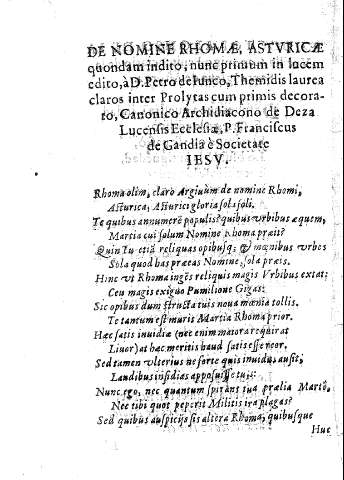 DE NOMINE RHOMÆ, ASTVRICÆ
quondam indito, nunc primum in lucem
edito, à D. Petro de Iunco, Themidis laurea
claros inter Prolytas cum primis decora-
to, Canonico Archidiacono de Deza
Lucensis Ecclesiæ, P. Franciscus
de Gandia è Societate
IESV.
Rhoma olim, claro Argiuûm de nomine Rhomi,
Asturica, Asturici gloria sola soli.
Te quibus annumerē populis? quibus vrbibus æquem,
Martia cui solum Nomine Rhoma præit?
Quin tu etiā reliquas opibusq; & mœnibus vrbes
Sola quod has præeas Nomine, sola præis.
Hinc vt Rhoma ingēs reliquis magis Vrbibus extat:
Ceu magis exiguo Pumilione Gigas:
Sic opibus dum structa tuis noua mœnia tollis.
Te tantum est muris Martia Rhoma prior.
Hæc satis inuidiæ (nec enim maiora requirat
Liuor) at hæc meritis haud satis esse reor.
Sed tamen vlterius ne forte quis inuidus, ausit,
Laudibus insidias apposuisse tuis:
Nunc ego, nec quantum spirant tua prælia Martē,
Nec tibi quot peperit Militis ira plagas?
Sed quibus auspicijs sis altera Rhoma, quibusque
Huc